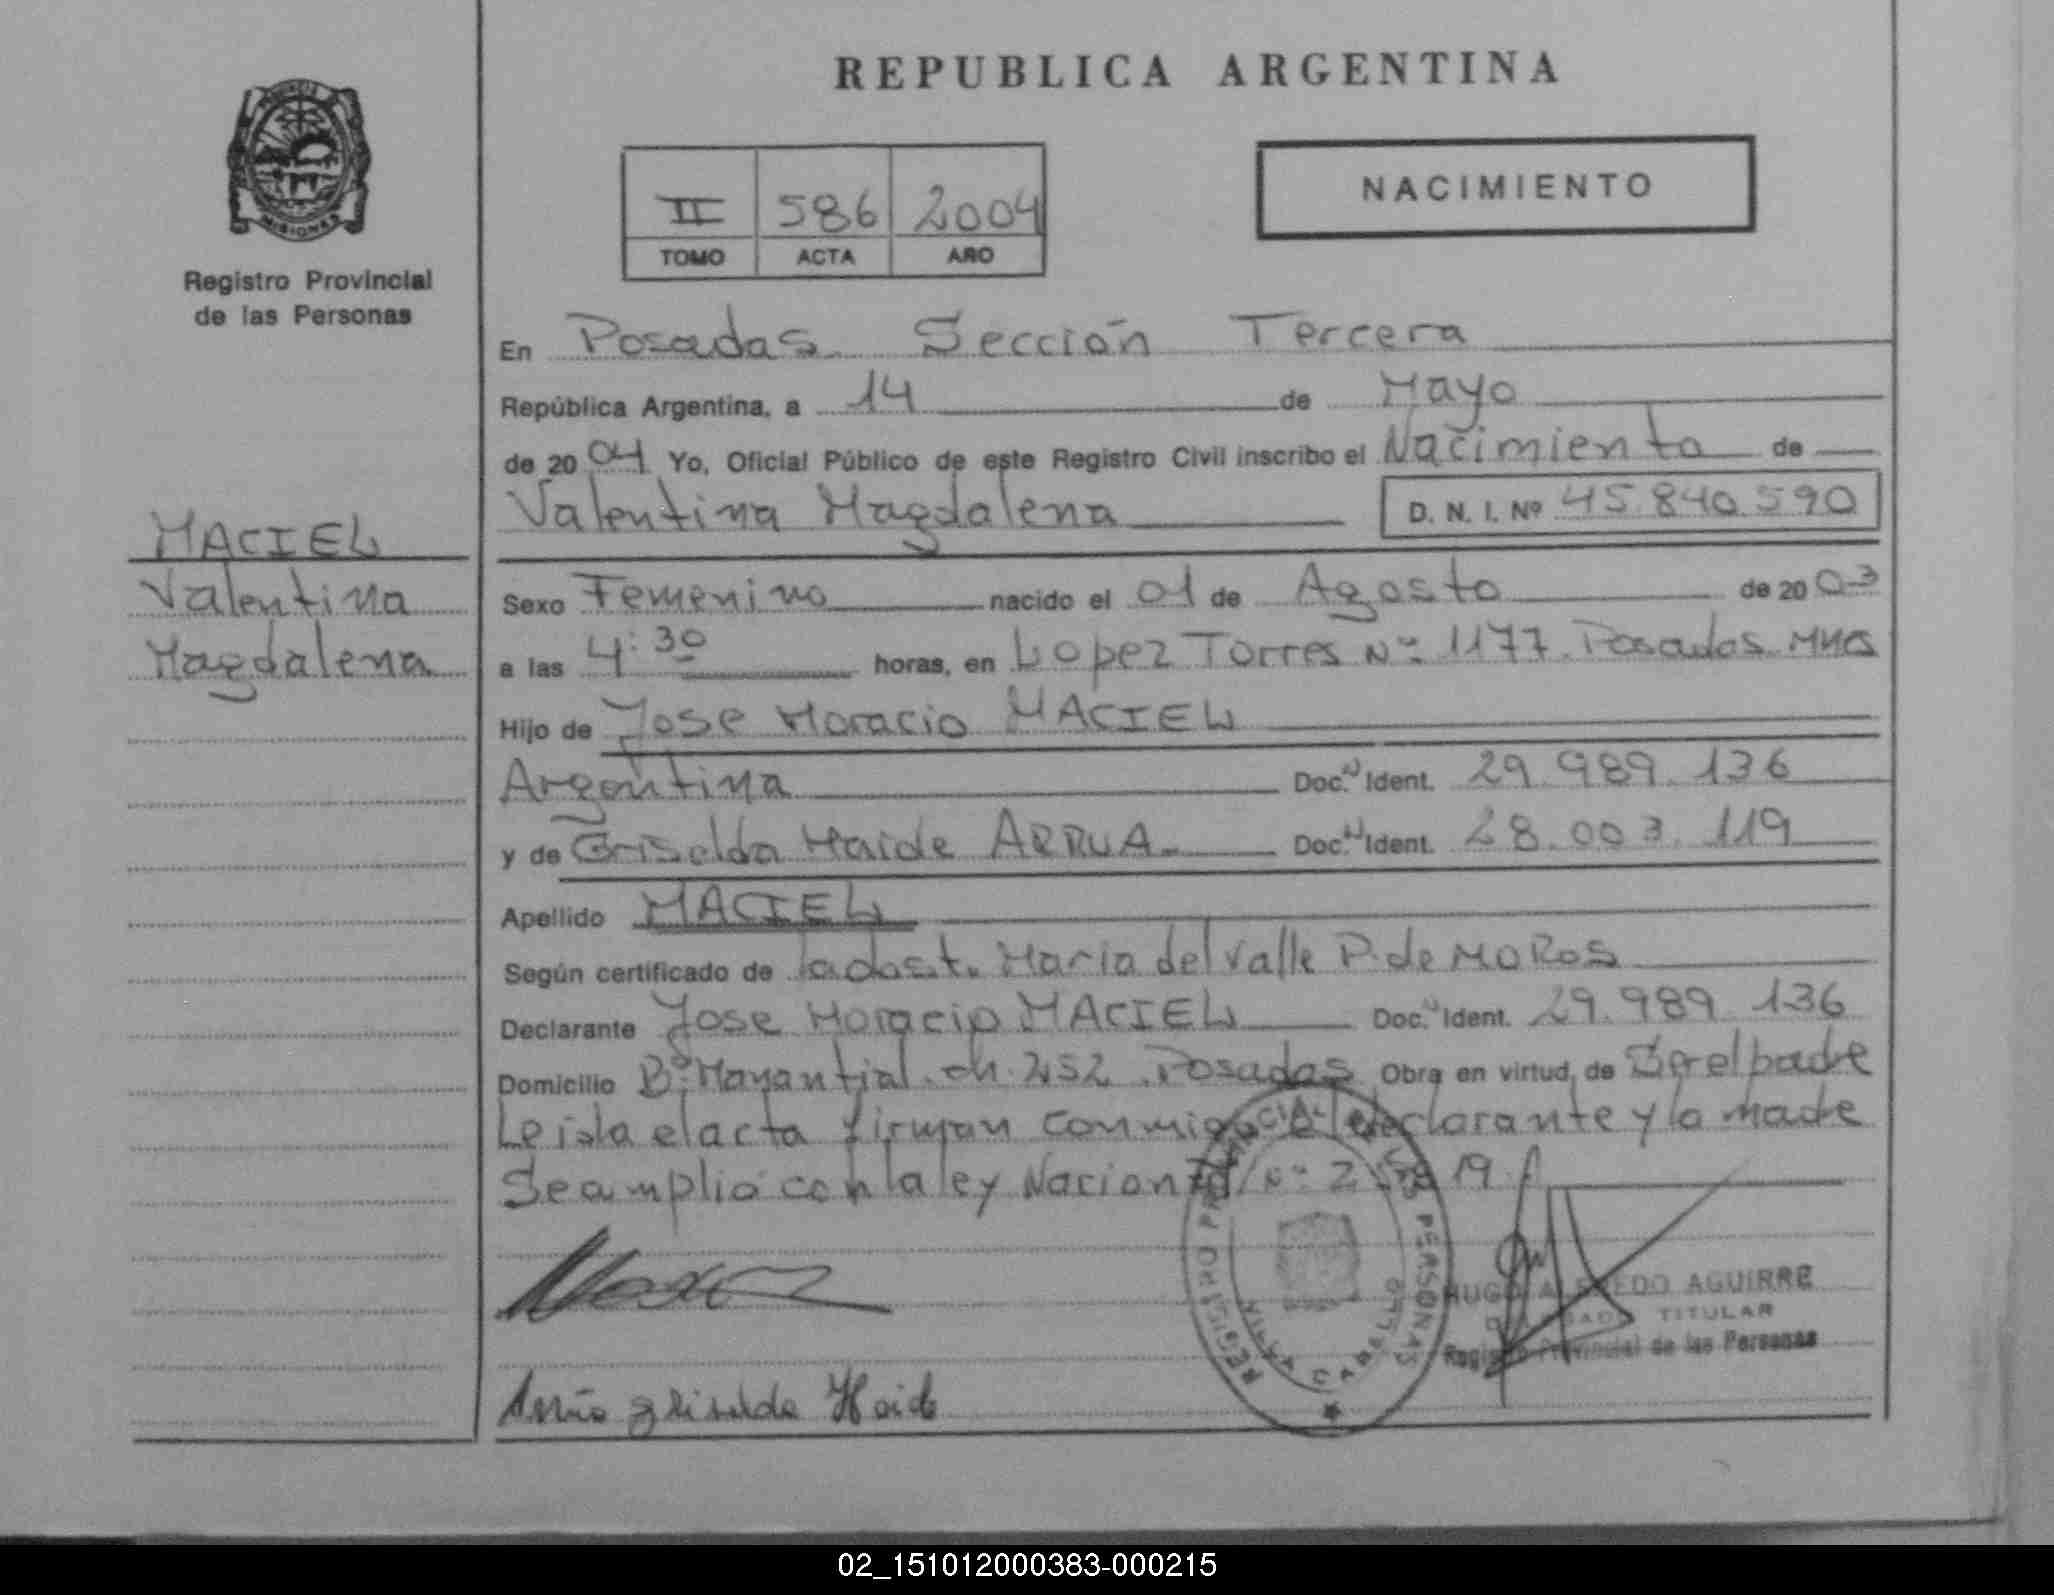 REPUBLICA ARGENTINA
MISIONES
Registro Provincial
de las Personas
II 586 2004
TOMO ACTA AÑO
NACIMIENTO
En Posadas Sección Tercera
República Argentina, a 14 de Mayo
de 2004 Yo, Oficial Público de este Registro Civil inscribo el Nacimiento de
Valentina Magdalena D. N. I. Nº 45.840.590
MACIEL
Valentina
Magdalena
Sexo Femenino nacido el 01 de Agosto de 2003
a las 4:30 horas, en Lopez Torres Nº 1177 Posadas Mnes
Hijo de Jose Horacio MACIEL
Argentina Doc. Ident. 29.989.136
y de Griselda Haide ARRUA Doc. Ident. 28.003.119
Apellido MACIEL
Según certificado de Maria del Valle P. de MOROS
Declarante Jose Horacio MACIEL Doc. Ident. 29.989.136
Domicilio Bº Manantial ch 252 Posadas Obra en virtud de Ser el padre
Leida el acta firman conmigo el declarante y la madre
Se amplió con la ley Nacional Nº 2 19
REGISTRO PROVINCIAL DE LAS PERSONAS
VILLA CABELLO
HUGO ALFREDO AGUIRRE
DELEGADO TITULAR
Registro Provincial de las Personas
Arrua griselda Haide
02_151012000383-000215